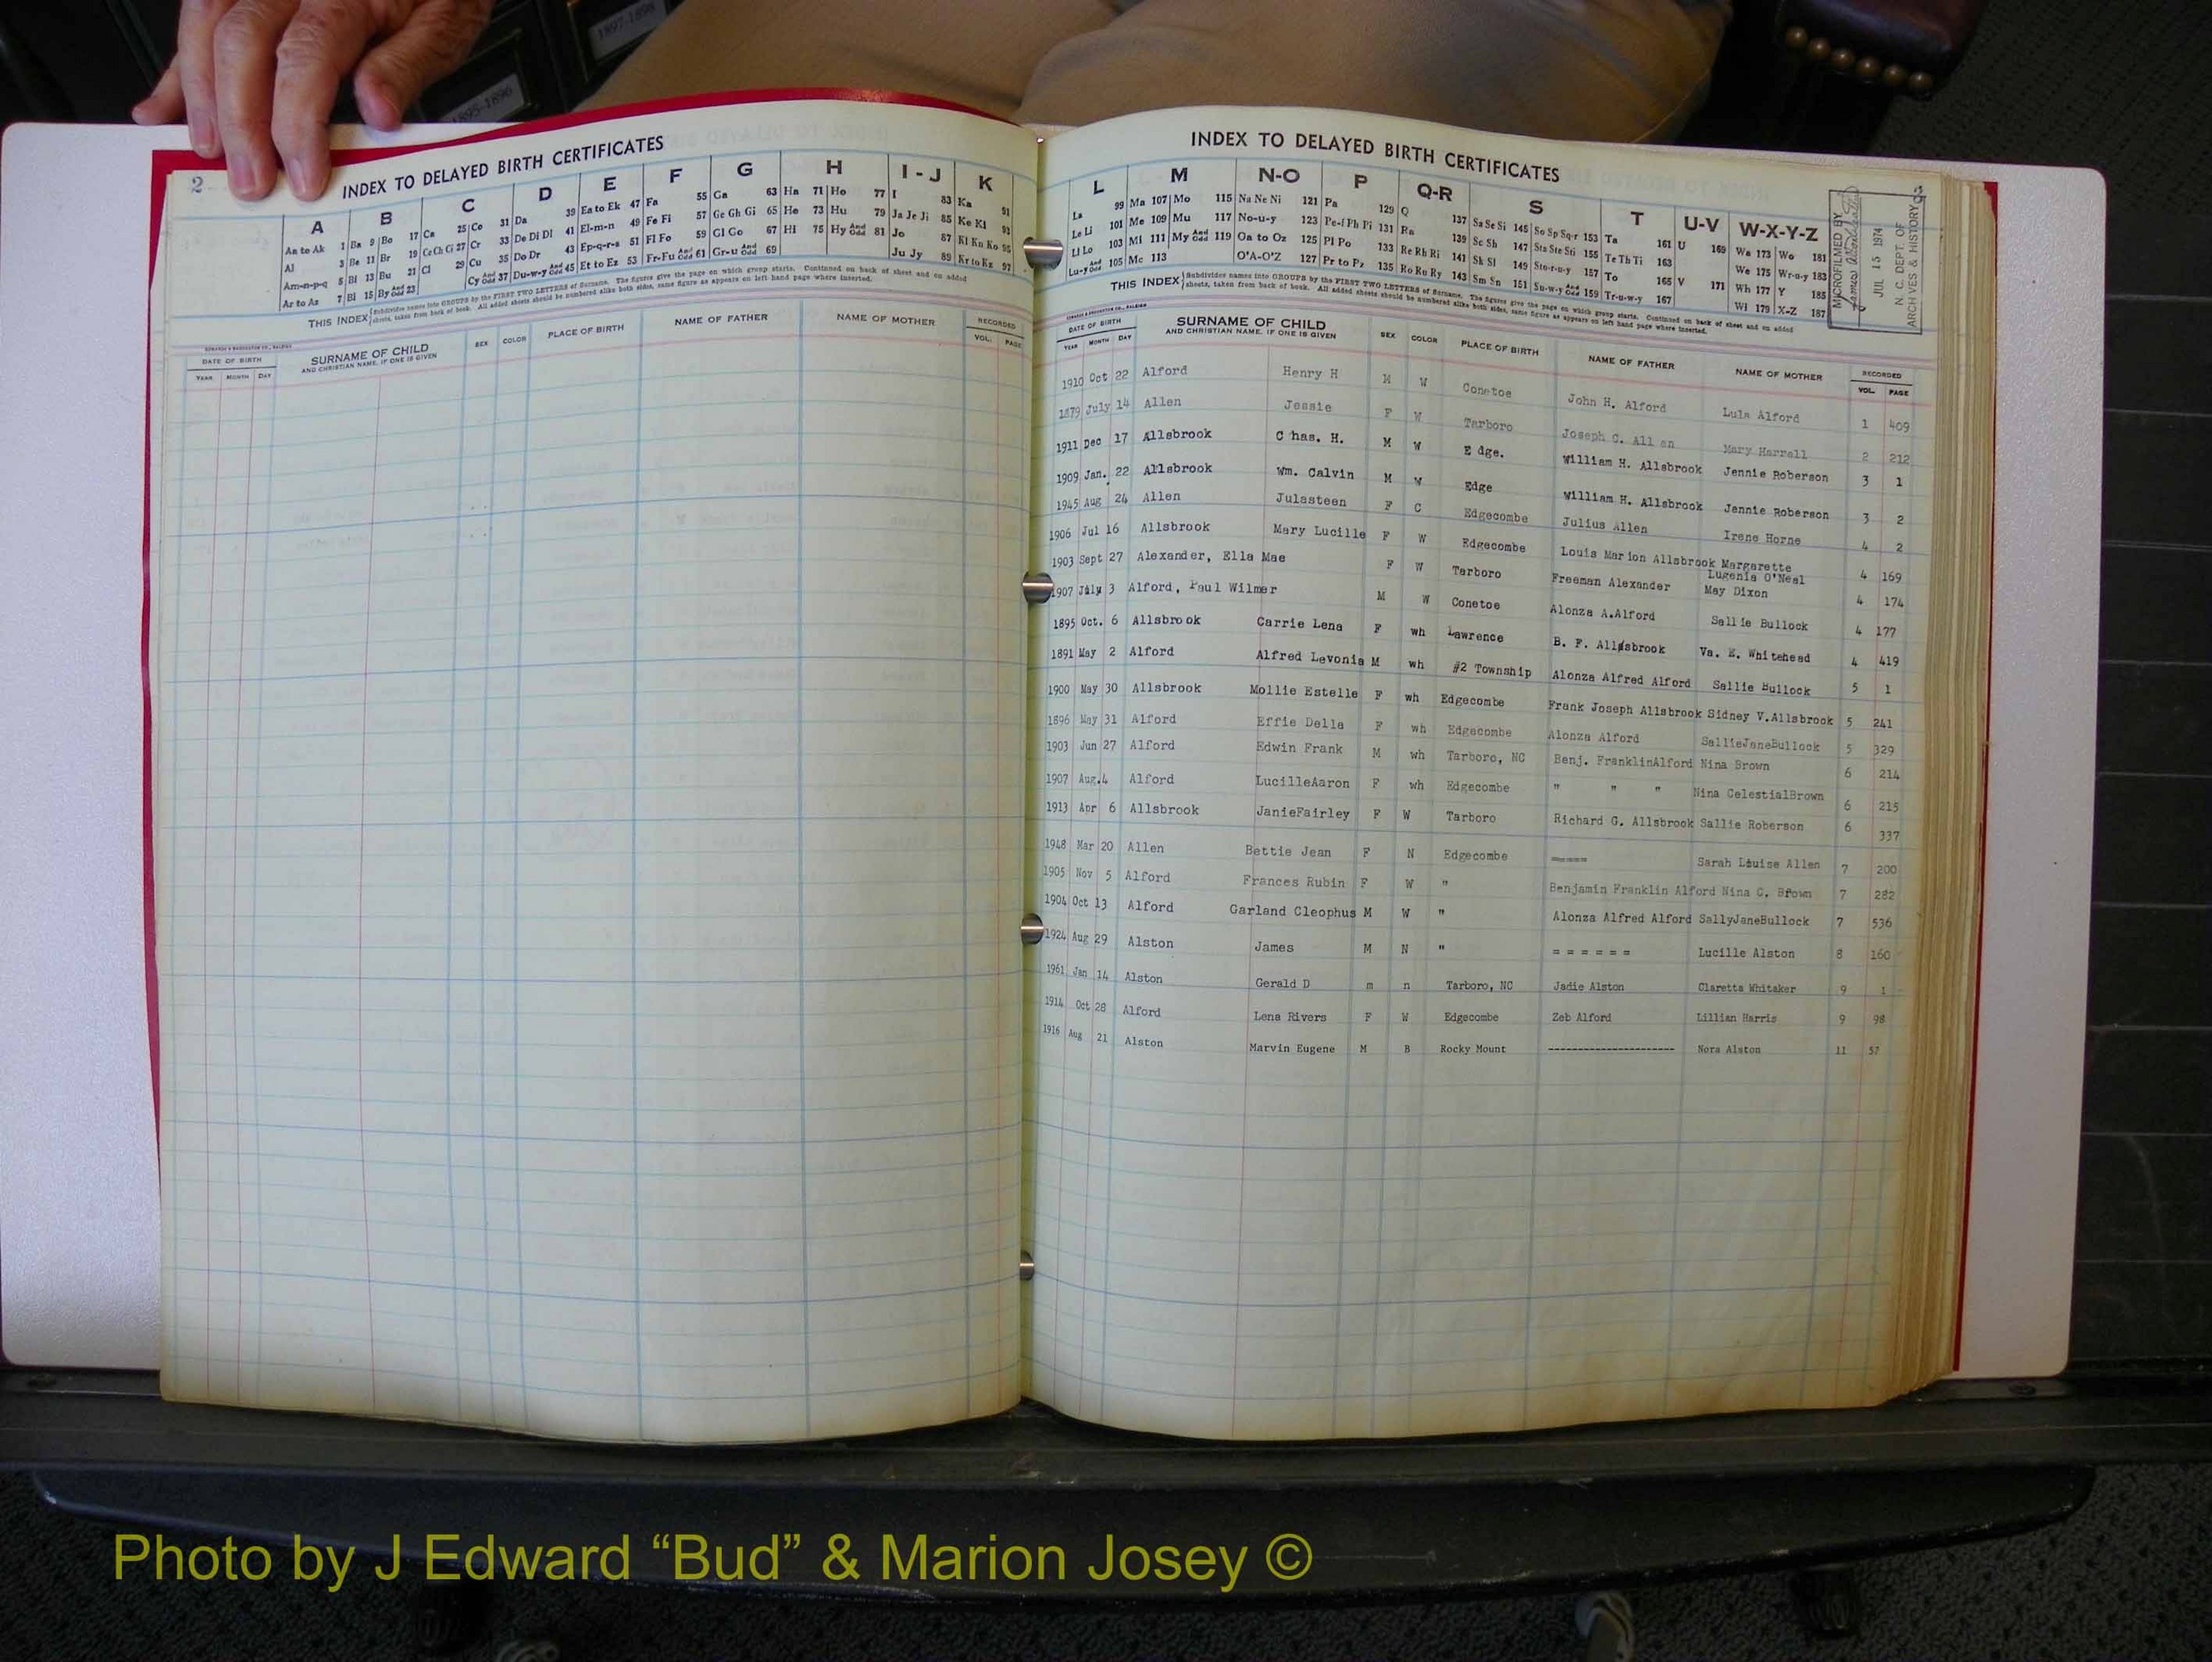 1897-1898
1895-1896
2
INDEX TO DELAYED BIRTH CERTIFICATES
A B C D E F G H I - J K
Aa to Ak 1 Ba 9 Bo 17 Ca 25 Co 31 Da 39 Ea to Ek 47 Fa 55 Ga 63 Ha 71 Ho 77 I 83 Ka 91
Al 3 Be 11 Br 19 Ce Ch Ci 27 Cr 33 De Di Dl 41 El-m-n 49 Fe Fi 57 Ge Gh Gi 65 He 73 Hu 79 Ja Je Ji 85 Ke Kl 93
Am-n-p-q 5 Bi 13 Bu 21 Cl 29 Cu 35 Do Dr 43 Ep-q-r-s 51 Fl Fo 59 Gl Go 67 Hi 75 Hy And Odd 81 Jo 87 Kl Kn Ko 95
Ar to Az 7 Bl 15 By And Odd 23 Cy And Odd 37 Du-w-y And Odd 45 Et to Ez 53 Fr-Fu And Odd 61 Gr-u And Odd 69 Ju Jy 89 Kr to Kz 97
THIS INDEX Subdivides names into GROUPS by the FIRST TWO LETTERS of Surname. The figures give the page on which group starts. Continued on back of sheet and on added
sheets, taken from back of book. All added sheets should be numbered alike both sides, same figure as appears on left hand page where inserted.
DATE OF BIRTH SURNAME OF CHILD SEX COLOR PLACE OF BIRTH NAME OF FATHER NAME OF MOTHER RECORDED
YEAR MONTH DAY AND CHRISTIAN NAME, IF ONE IS GIVEN VOL. PAGE
INDEX TO DELAYED BIRTH CERTIFICATES
L M N-O P Q-R S T U-V W-X-Y-Z
La 99 Ma 107 Mo 115 Na Ne Ni 121 Pa 129 Q 137 Sa Se Si 145 So Sp Sq-r 153 Ta 161 U 169 Wa 173 Wo 181
Le Li 101 Me 109 Mu 117 No-u-y 123 Pe-f Ph Pi 131 Ra 139 Sc Sh 147 Sta Ste Sti 155 Te Th Ti 163 We 175 Wr-u-y 183
Ll Lo 103 Mi 111 My And Odd 119 Oa to Oz 125 Pl Po 133 Re Rh Ri 141 Sk Sl 149 Sto-r-u-y 157 To 165 V 171 Wh 177 Y 185
Lu-y And Odd 105 Mc 113 O'A-O'Z 127 Pr to Pz 135 Ro Ru Ry 143 Sm Sn 151 Su-w-y And Odd 159 Tr-u-w-y 167 Wi 179 X-Z 187
THIS INDEX Subdivides names into GROUPS by the FIRST TWO LETTERS of Surname. The figures give the page on which group starts. Continued on back of sheet and on added
sheets, taken from back of book. All added sheets should be numbered alike both sides, same figure as appears on left hand page where inserted.
MICROFILMED BY
JUL 15 1974
N. C. DEPT. OF
ARCHIVES & HISTORY
DATE OF BIRTH SURNAME OF CHILD SEX COLOR PLACE OF BIRTH NAME OF FATHER NAME OF MOTHER RECORDED
YEAR MONTH DAY AND CHRISTIAN NAME, IF ONE IS GIVEN VOL. PAGE
1910 Oct 22 Alford Henry H M W Conetoe John H. Alford Lula Alford 1 409
1879 July 14 Allen Jessie F W Tarboro Joseph C. All en Mary Harrell 2 212
1911 Dec 17 Allsbrook C has. H. M W E dge. William H. Allsbrook Jennie Roberson 3 1
1909 Jan. 22 Allsbrook Wm. Calvin M W Edge William H. Allsbrook Jennie Roberson 3 2
1945 Aug 24 Allen Julasteen F C Edgecombe Julius Allen Irene Horne 4 2
1906 Jul 16 Allsbrook Mary Lucille F W Edgecombe Louis Marion Allsbrook Margarette Lugenia O'Neal 4 169
1903 Sept 27 Alexander, Ella Mae F W Tarboro Freeman Alexander May Dixon 4 174
1907 July 3 Alford, Paul Wilmer M W Conetoe Alonza A.Alford Sallie Bullock 4 177
1895 Oct. 6 Allsbrook Carrie Lena F wh Lawrence B. F. Allsbrook Va. E. Whitehead 4 419
1891 May 2 Alford Alfred Levonia M wh #2 Township Alonza Alfred Alford Sallie Bullock 5 1
1900 May 30 Allsbrook Mollie Estelle F wh Edgecombe Frank Joseph Allsbrook Sidney V.Allsbrook 5 241
1896 May 31 Alford Effie Della F wh Edgecombe Alonza Alford SallieJaneBullock 5 329
1903 Jun 27 Alford Edwin Frank M wh Tarboro, NC Benj. FranklinAlford Nina Brown 6 214
1907 Aug.4 Alford LucilleAaron F wh Edgecombe " " " Nina CelestialBrown 6 215
1913 Apr 6 Allsbrook JanieFairley F W Tarboro Richard G. Allsbrook Sallie Roberson 6 337
1948 Mar 20 Allen Bettie Jean F N Edgecombe ===== Sarah Louise Allen 7 200
1905 Nov 5 Alford Frances Rubin F W " Benjamin Franklin Alford Nina C. Brown 7 282
1904 Oct 13 Alford Garland Cleophus M W " Alonza Alfred Alford SallyJaneBullock 7 536
1924 Aug 29 Alston James M N " = = = = = = Lucille Alston 8 160
1961 Jan 14 Alston Gerald D m n Tarboro, NC Jadie Alston Claretta Whitaker 9 1
1914 Oct 28 Alford Lena Rivers F W Edgecombe Zeb Alford Lillian Harris 9 98
1916 Aug 21 Alston Marvin Eugene M B Rocky Mount ---------------------- Nora Alston 11 57
Photo by J Edward “Bud” & Marion Josey ©